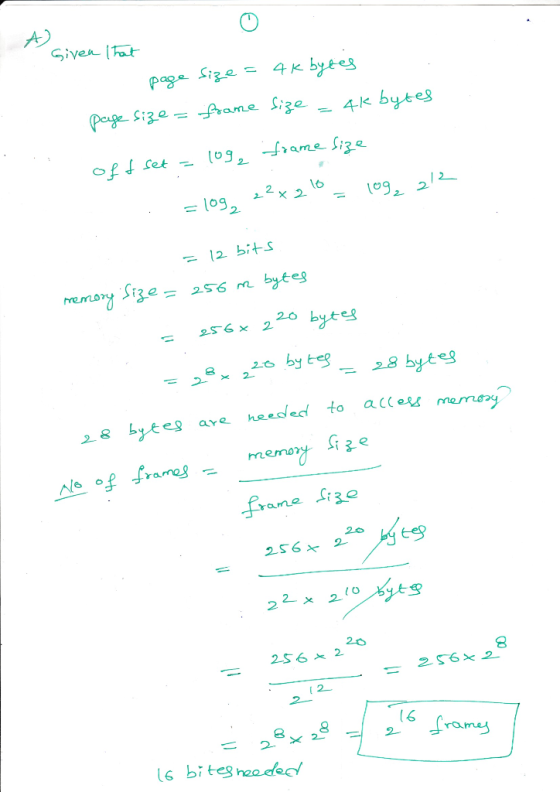 1
A)
Given that
page size = 4k bytes
page size = frame size = 4k bytes
offset = log₂ frame size
= log₂ 2² x 2¹⁰ = log₂ 2¹²
= 12 bits
memory size = 256 m bytes
= 256 x 2²⁰ bytes
= 2⁸ x 2²⁰ bytes = 28 bytes
28 bytes are needed to access memory
No of frames = memory size
frame size
= 256 x 2²⁰ bytes
2² x 2¹⁰ bytes
= 256 x 2²⁰ = 256 x 2⁸
2¹²
= 2⁸ x 2⁸ = 2¹⁶ frames
16 bites needed